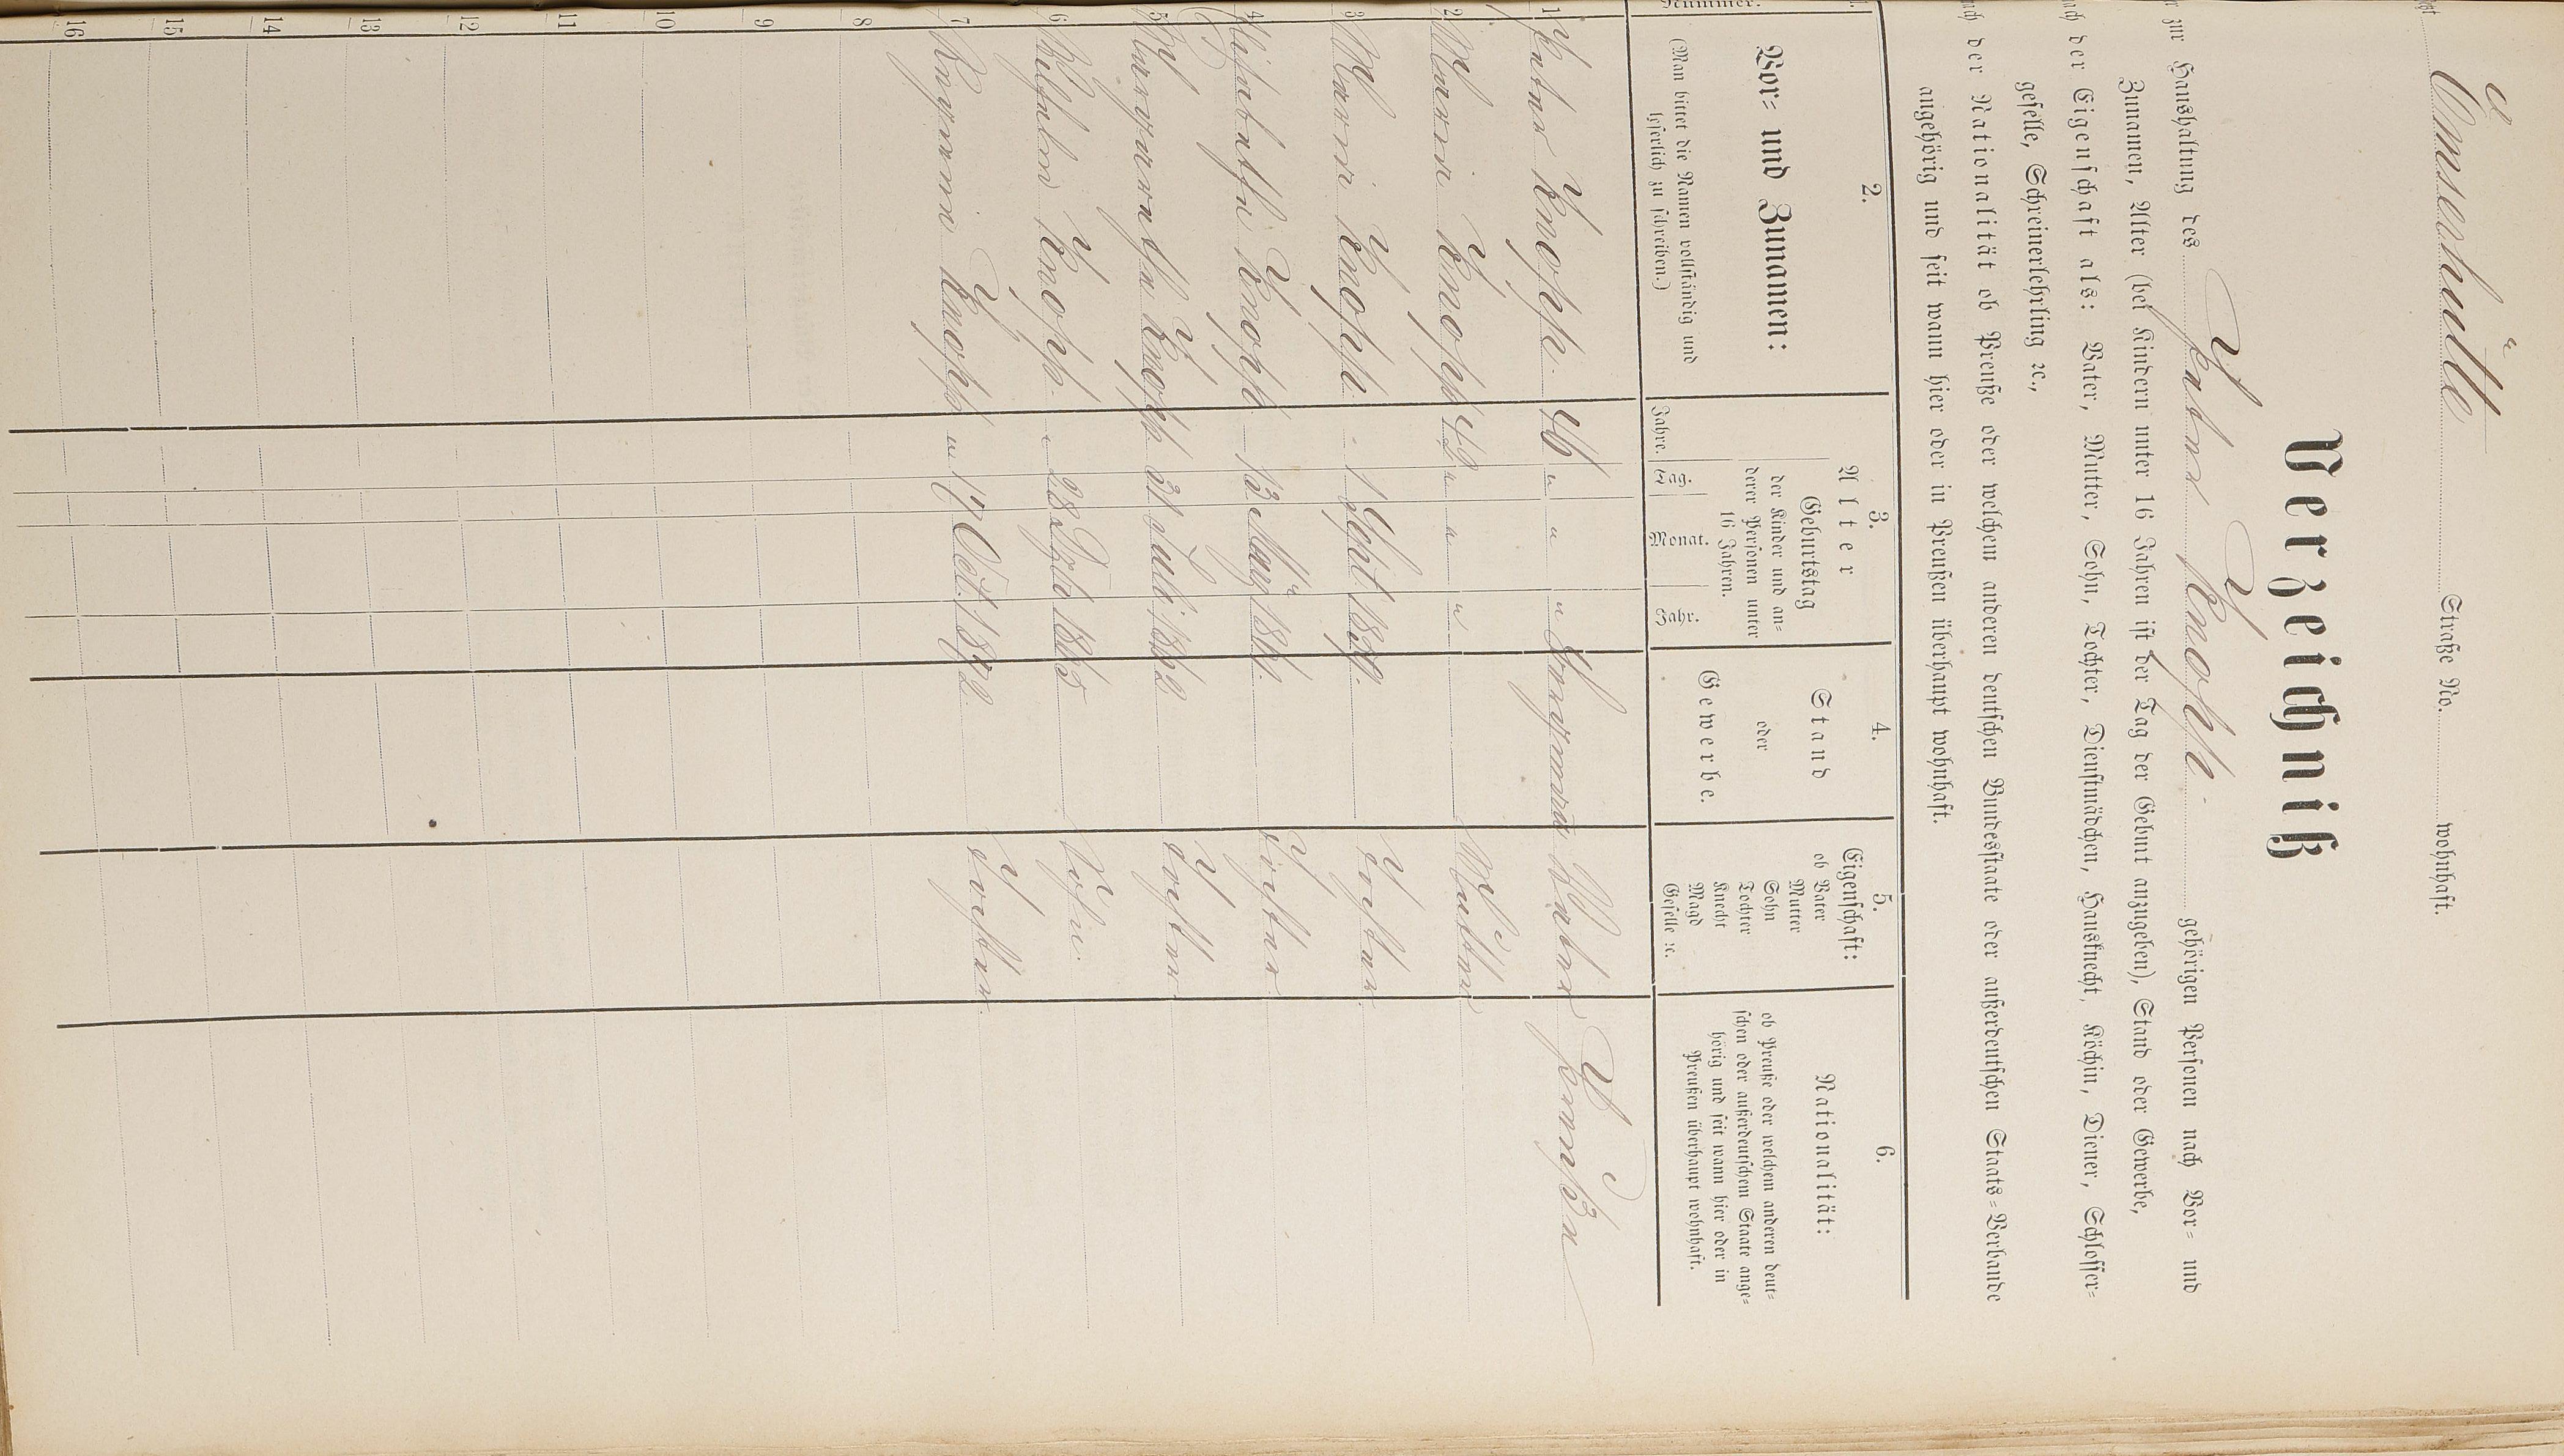 Emsenhütte Straße No. wohnhaft.
Verzeichniß
zur Haushaltung des Peter Knopp gehörigen Personen nach Vor= und
Zunamen, Alter (bei Kindern unter 16 Jahren ist der Tag der Geburt anzugeben), Stand oder Gewerbe,
nach der Eigenschaft als: Vater, Mutter, Sohn, Tochter, Dienstmädchen, Hausknecht, Köchin, Diener, Schlosser=
geselle, Schreinerlehrling ꝛc.,
nach der Nationalität ob Preuße oder welchem anderen deutschen Bundesstaate oder außerdeutschen Staats=Verbande
angehörig und seit wann hier oder in Preußen überhaupt wohnhaft.
2. 3. 4. 5. 6.
Nummer.
Vor= und Zunamen:
(Man bittet die Namen vollständig und
leserlich zu schreiben.)
Alter
Jahre.
Geburtstag
der Kinder und an=
derer Personen unter
16 Jahren.
Tag. Monat. Jahr.
Stand
oder
Gewerbe.
Eigenschaft:
ob Vater
Mutter
Sohn
Tochter
Knecht
Magd
Geselle ꝛc.
Nationalität:
ob Preuße oder welchem anderen deut=
schen oder außerdeutschem Staate ange=
hörig und seit wann hier oder in
Preußen überhaupt wohnhaft.
1 Peter Knopp 46 " " " Bergmann Vater Preußen
2 Maria Knopp 42 " " " Mutter
3 Maria Knopp - 1 Sept 1859. Tochter
4 Elisabetha Knopp - 13 März 1861. Tochter
5 Margaretha Knopp 31 Juli 1862 Tochter
6 Wilhelm Knopp - 28 Dzb 1865 Sohn
7 Regina Knopp " 17 Oct. 1872 Tochter
8
9
10
11
12
13
14
15
16